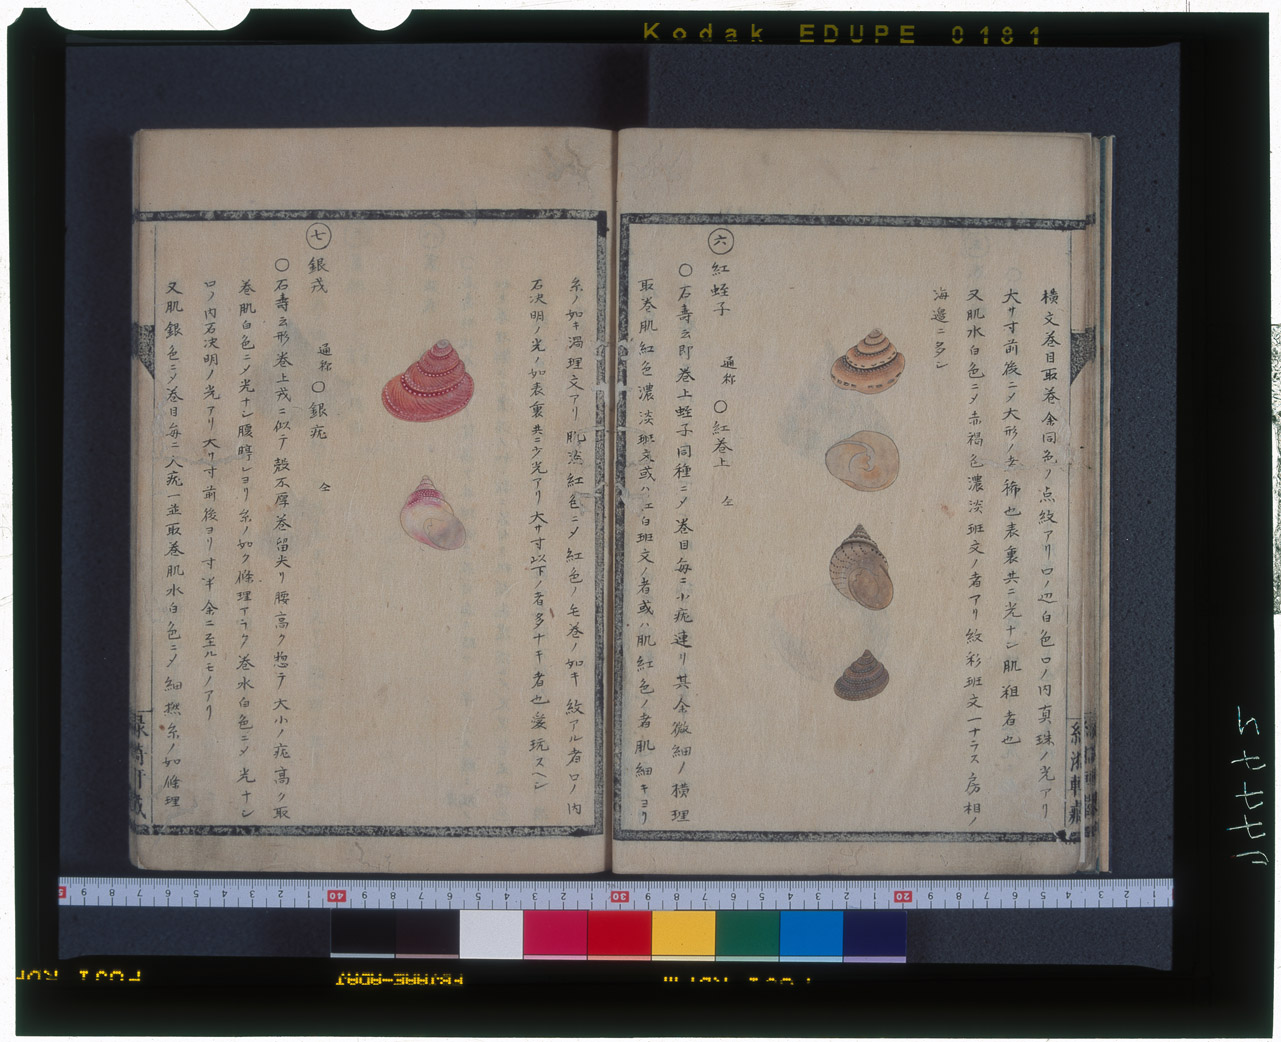 Kodak EDUPE 0181
横文巻目取巻余同色ノ点紋アリ口ノ辺白色口ノ内真珠ノ光アリ
大サ寸前後ニメ大形ノ者稀也表裏共ニ光ナシ肌粗者也
又肌水白色ニメ赤褐色濃淡斑文ノ者アリ紋彩斑文一ナラス房相ノ
海邉ニ多シ
六 紅蛭子 通称 〇紅巻上 仝
〇石壽云即巻上蛭子同種ニメ巻目毎ニ小疣連リ其余微細ノ横理
取巻肌紅色濃淡斑文或ハ紅白斑文ノ者或ハ肌紅色ノ者肌細キヨリ
糸ノ如キ渦理文アリ肌淡紅色ニメ紅色ノ毛巻ノ如キ紋アル者口ノ内
石决明ノ光ノ如表裏共ニ少光アリ大サ寸以下ノ者多ナキ者也愛玩スヘシ
七 銀戎 通称 〇銀疣 仝
〇石壽云形巻上戎ニ似テ殻不厚巻留尖リ腰高ク惣テ大小ノ疣高ク取
巻肌白色ニメ光ナシ腰ヨリ糸ノ如ク條理アラク巻水白色ニメ光ナシ
口ノ内石决明ノ光アリ大サ寸前後ヨリ寸半余ニ至ルモノアリ
又肌銀色ニメ巻目毎ニ大疣一並取巻肌水白色ニメ細撚糸ノ如條理